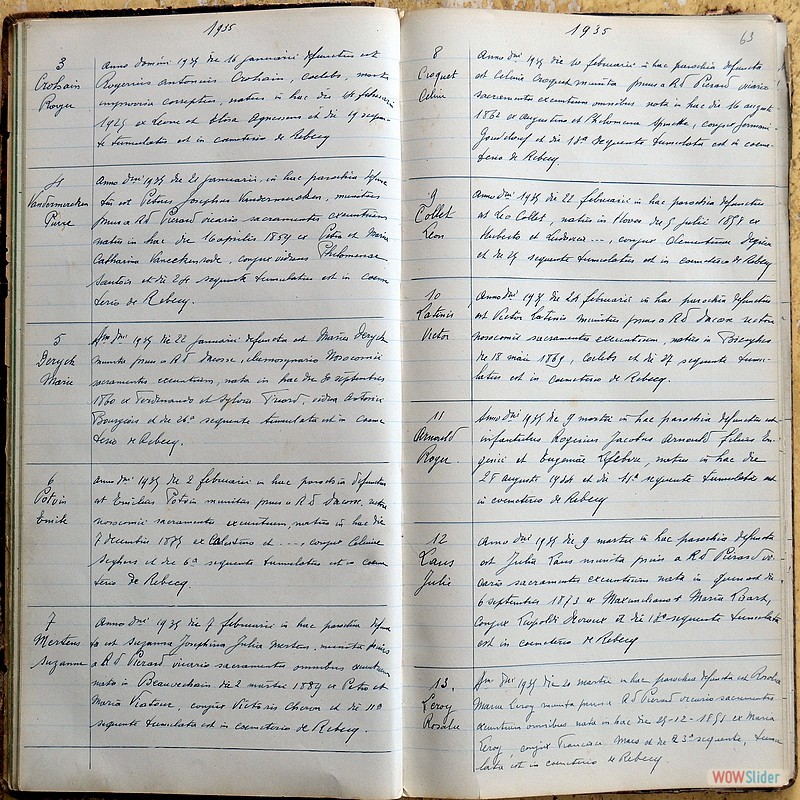 1935
3
Crohain
Roger
Anno domini 1935 die 16 januarii defunctus est
Rogerius Antonius Crohain, coelebs, morte
improvisa correptus, natus in hac die februarii
1925 ex Leone et Elisa Agnessens et die 19 sequen-
te tumulatus est in coemeterio de Rebecq
4
Vandermeercken
Pierre
Anno Dni 1935 die januarii, in hac parochia defunc-
tus est Petrus Josephus Vandermeercken, munitus
prius a Rd Pierard vicario sacramentis exeuntium
natus in hac die aprilis ex Petro et Maria
Catharina conjux viduus Philomenae
et die sequente tumulatus est in coeme-
terio de Rebecq.
5
Deryck
Marie
Ann Dni 1935 die 22 januarii defuncta est Maria Deryck
munita prius a Rd Dacosse, elemosynario Nosocomii
sacramentis exeuntium, nata in hac die septembris
1860 ex Ferdinando et Sylvia vidua Antonii
Bourgeois et die 26a sequente tumulata est in coeme-
terio de Rebecq.
6
Potvin
Emile
Anno Dni 1935 die 2 februarii in hac parochia defunctus
est Emilius Potvin munitus prius a Rd Dacosse,
nosocomii sacramentis exeuntium, natus in hac die
7 decembris ex Celestino et ..., conjux Celinae
Seghers et die 6a sequente tumulatus est in coeme-
terio de Rebecq.
7
Mertens
Suzanne
Anno Dni 1935 die 7 februarii in hac parochia defunc-
ta est Suzanna Josephina Julia Mertens, munita prius
a Rd Pierard vicario sacramentis omnibus exeuntium
nata in Beauvechain die 2 martii 1889 ex Petro et
Maria conjux Victoris et die 11a
sequente tumulata est in coemeterio de Rebecq.
1935
63
8
Croquet
Céline
Anno Dni 1935 die 10 februarii in hac parochia defuncta
est Celina Croquet munita prius a Rd Pierard vicario
sacramentis exeuntium omnibus nata in hac die 16 augusti
1862 ex Augustino et Philomena Spinette, conjux Germani
et die 18a sequente tumulata est in coeme-
terio de Rebecq
9
Collet
Léon
Anno Dni 1935 die 22 februarii in hac parochia defunctus
est Leo Collet, natus in Hoves die 5 julii ex
Huberto et Ludovica ..., conjux Clementinae
et die 25 sequente tumulatus est in coemeterio de Rebecq
10
Latinis
Victor
Anno Dni 1935 die februarii in hac parochia defunctus
est Victor Latinis munitus prius a Rd Dacosse
Nosocomii sacramentis exeuntium, natus in Bierghes
die 18 maii 1869, coelebs et die 27 sequente tumu-
latus est in coemeterio de Rebecq.
11
Arnould
Roger
Anno Dni 1935 die 9 martii in hac parochia defunctus est
infantulus Rogerius Jacobus Arnould filius Eu-
genii et Eugeniae Lefebvre, natus in hac die
augusti 1934 et die 11a sequente tumulatus est
in coemeterio de Rebecq
12
Laus
Julie
Anno Dni 1935 die 9 martii in hac parochia defuncta
est Julia Laus munita prius a Rd Pierard vi-
cario sacramentis exeuntium nata in Quenast die
6 septembris 1873 ex Maximiliano et Maria
conjux Leopoldi Deroux et die 12a sequente tumulata
est in coemeterio de Rebecq
13.
Leroy
Rosalie
Ann Dni 1935 die 20 martii in hac parochia defuncta est Rosalia
Maria Leroy munita prius a Rd Pierard vicario sacramentis
exeuntium omnibus nata in hac die 25-12-1851 ex Maria
Leroy, conjux Francisci Maes et die 23a sequente, tumu-
lata est in coemeterio de Rebecq.
WOWSlider